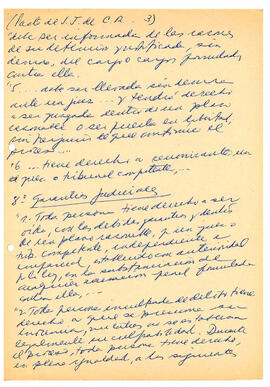 (Pacto de S.J. de C.R. 3)
debe ser informada de las razones
de su detención y notificada, sin
demora, del cargo o cargos formulados
contra ella.
"5. ... debe ser llevada sin demora
ante un juez ... y tendrá derecho
a ser juzgada dentro de un plazo
razonable o ser puesta en libertad,
sin perjuicio de que continúe el
proceso...
"6. ... tiene derecho a recurrir ante un
juez o tribunal competente, ...
8º Garantías Judiciales
"1. Toda persona tiene derecho a ser
oída, con las debidas garantías y dentro
de un plazo razonable, por un juez o
trib. competente, independiente e
imparcial, establecido con anterioridad
por la ley, en la substanciación de
cualquier acusación penal formulada
contra ella, ...
"2. Toda persona inculpada de delito tiene
derecho a que se presuma su
inocencia, mientras no se establezca
legalmente su culpabilidad. Durante
el proceso, toda persona tiene derecho,
en plena igualdad, a las siguientes